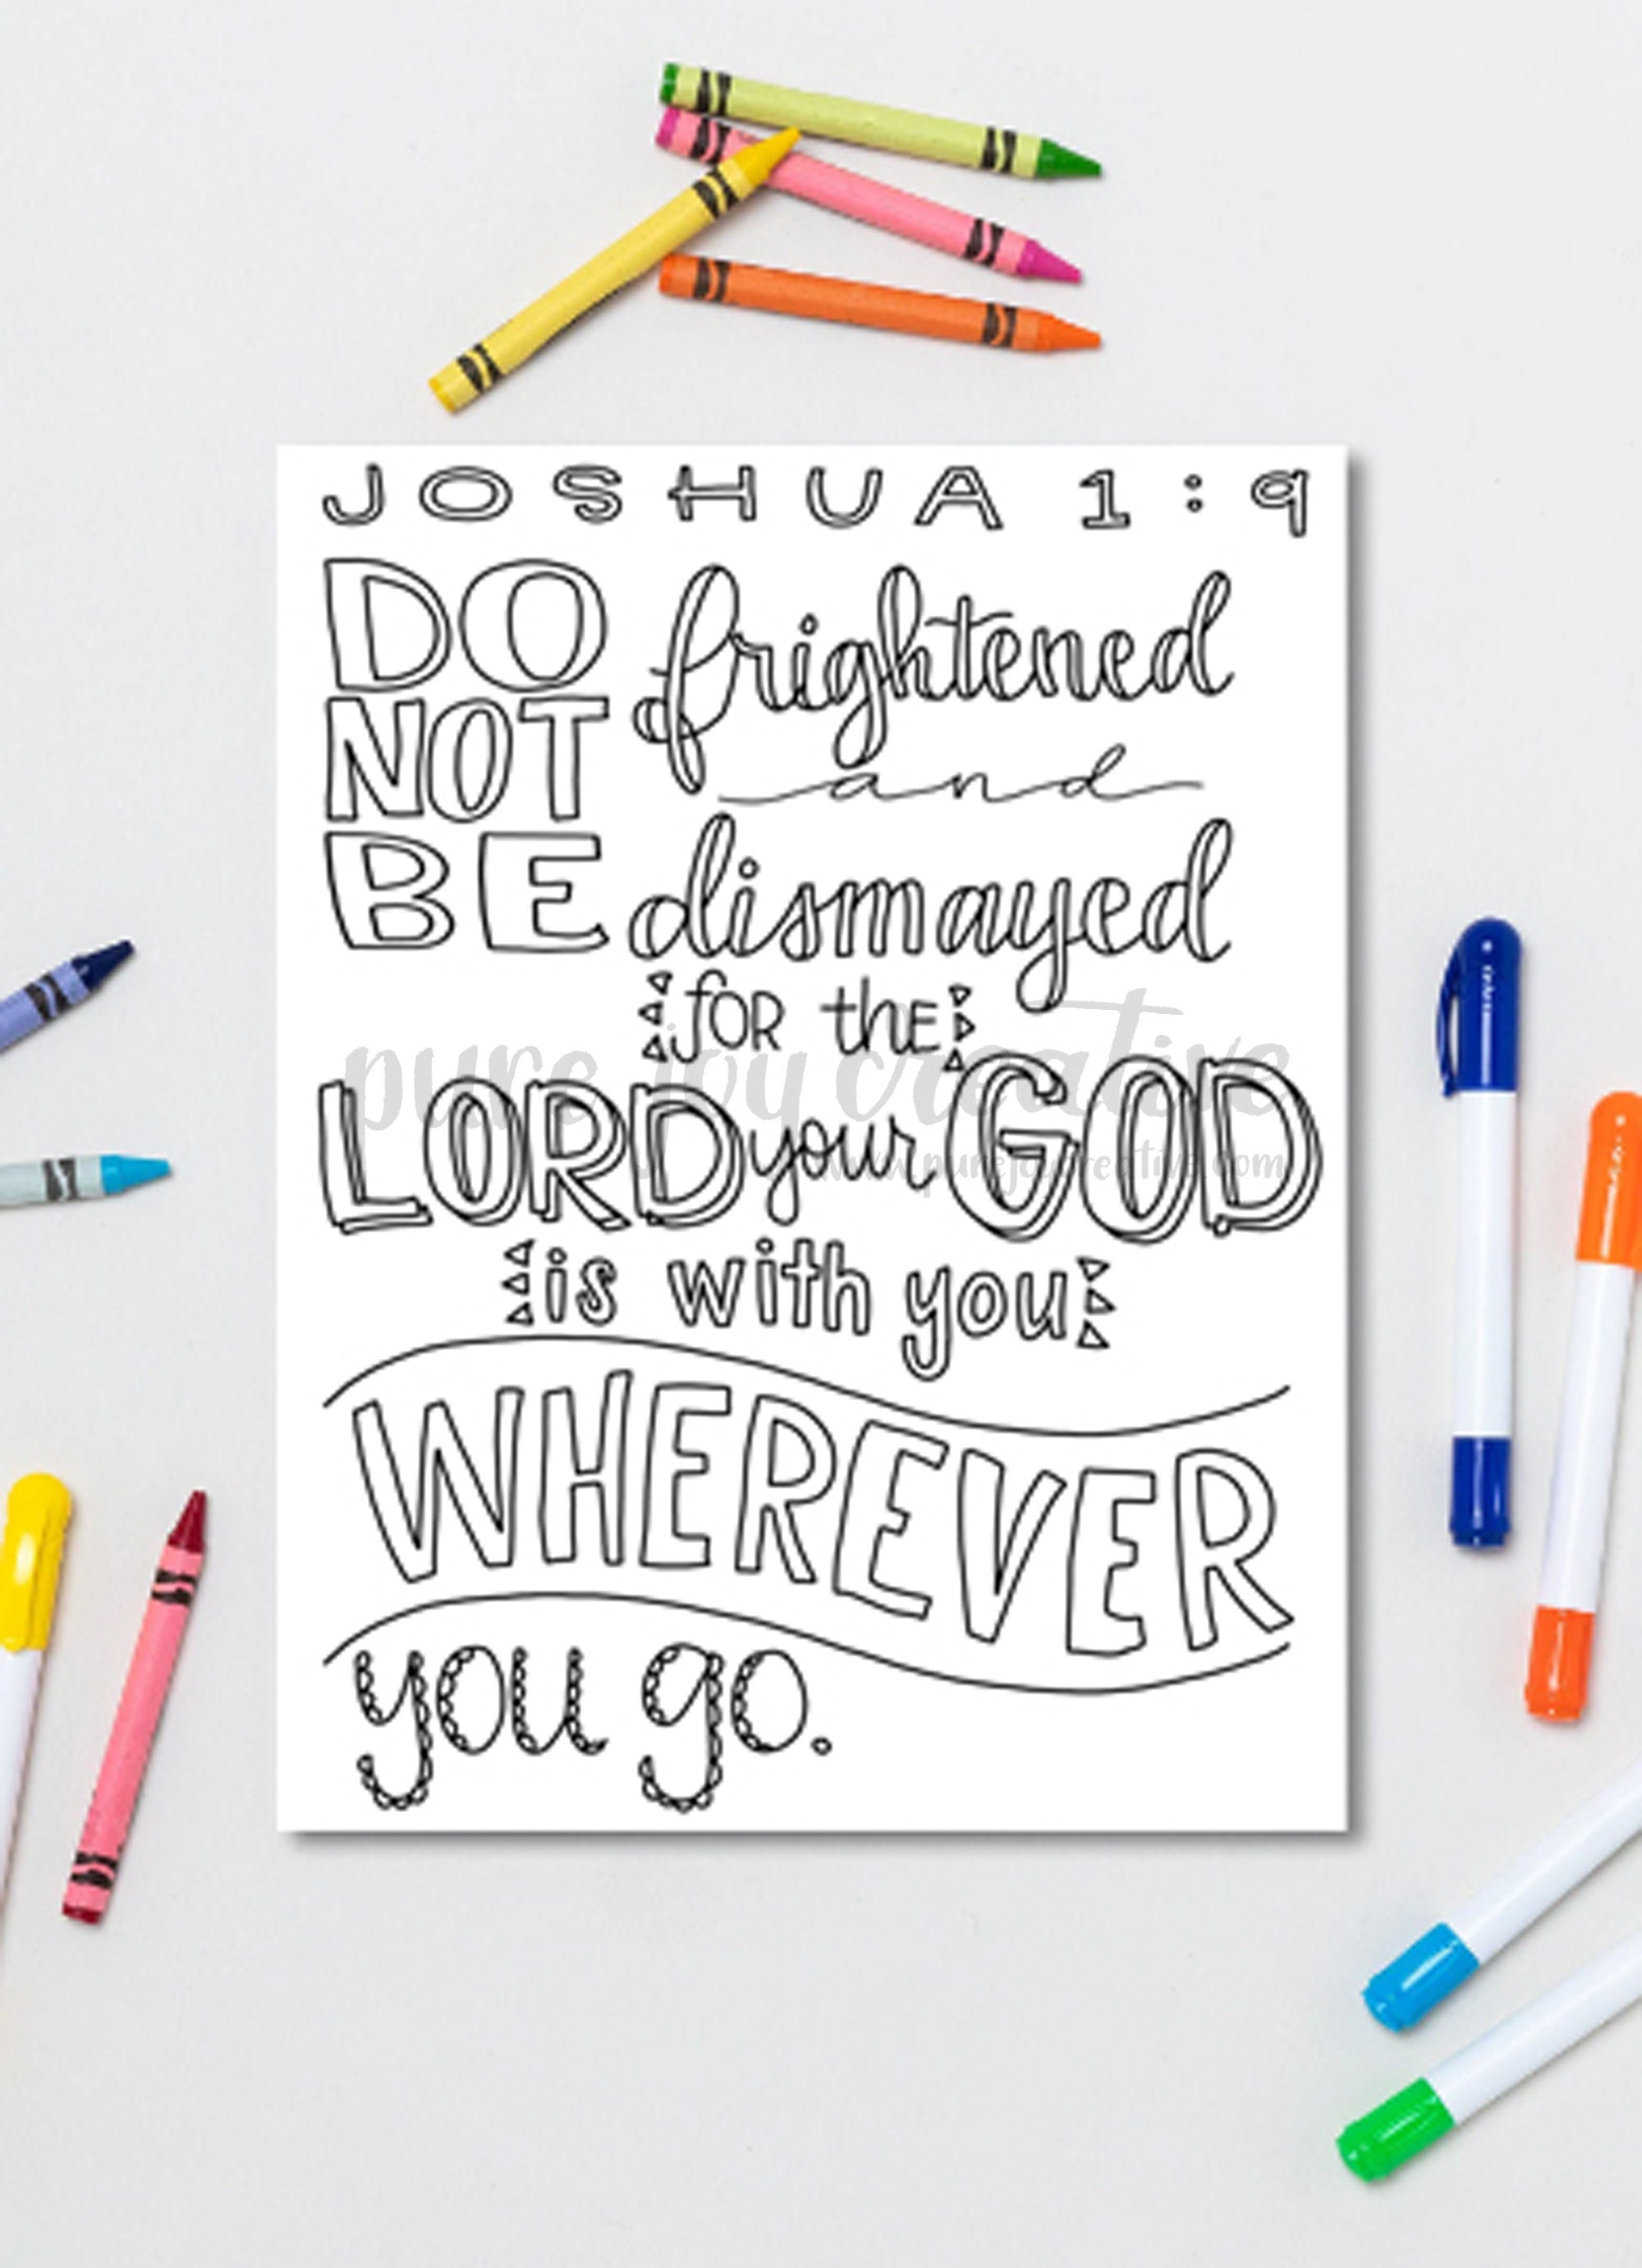 JOSHUA 1:9
DO NOT BE frightened
and
dismayed
for the
LORD your GOD
is with you
WHEREVER
you go.
pure joy creative
www.purejoycreative.com